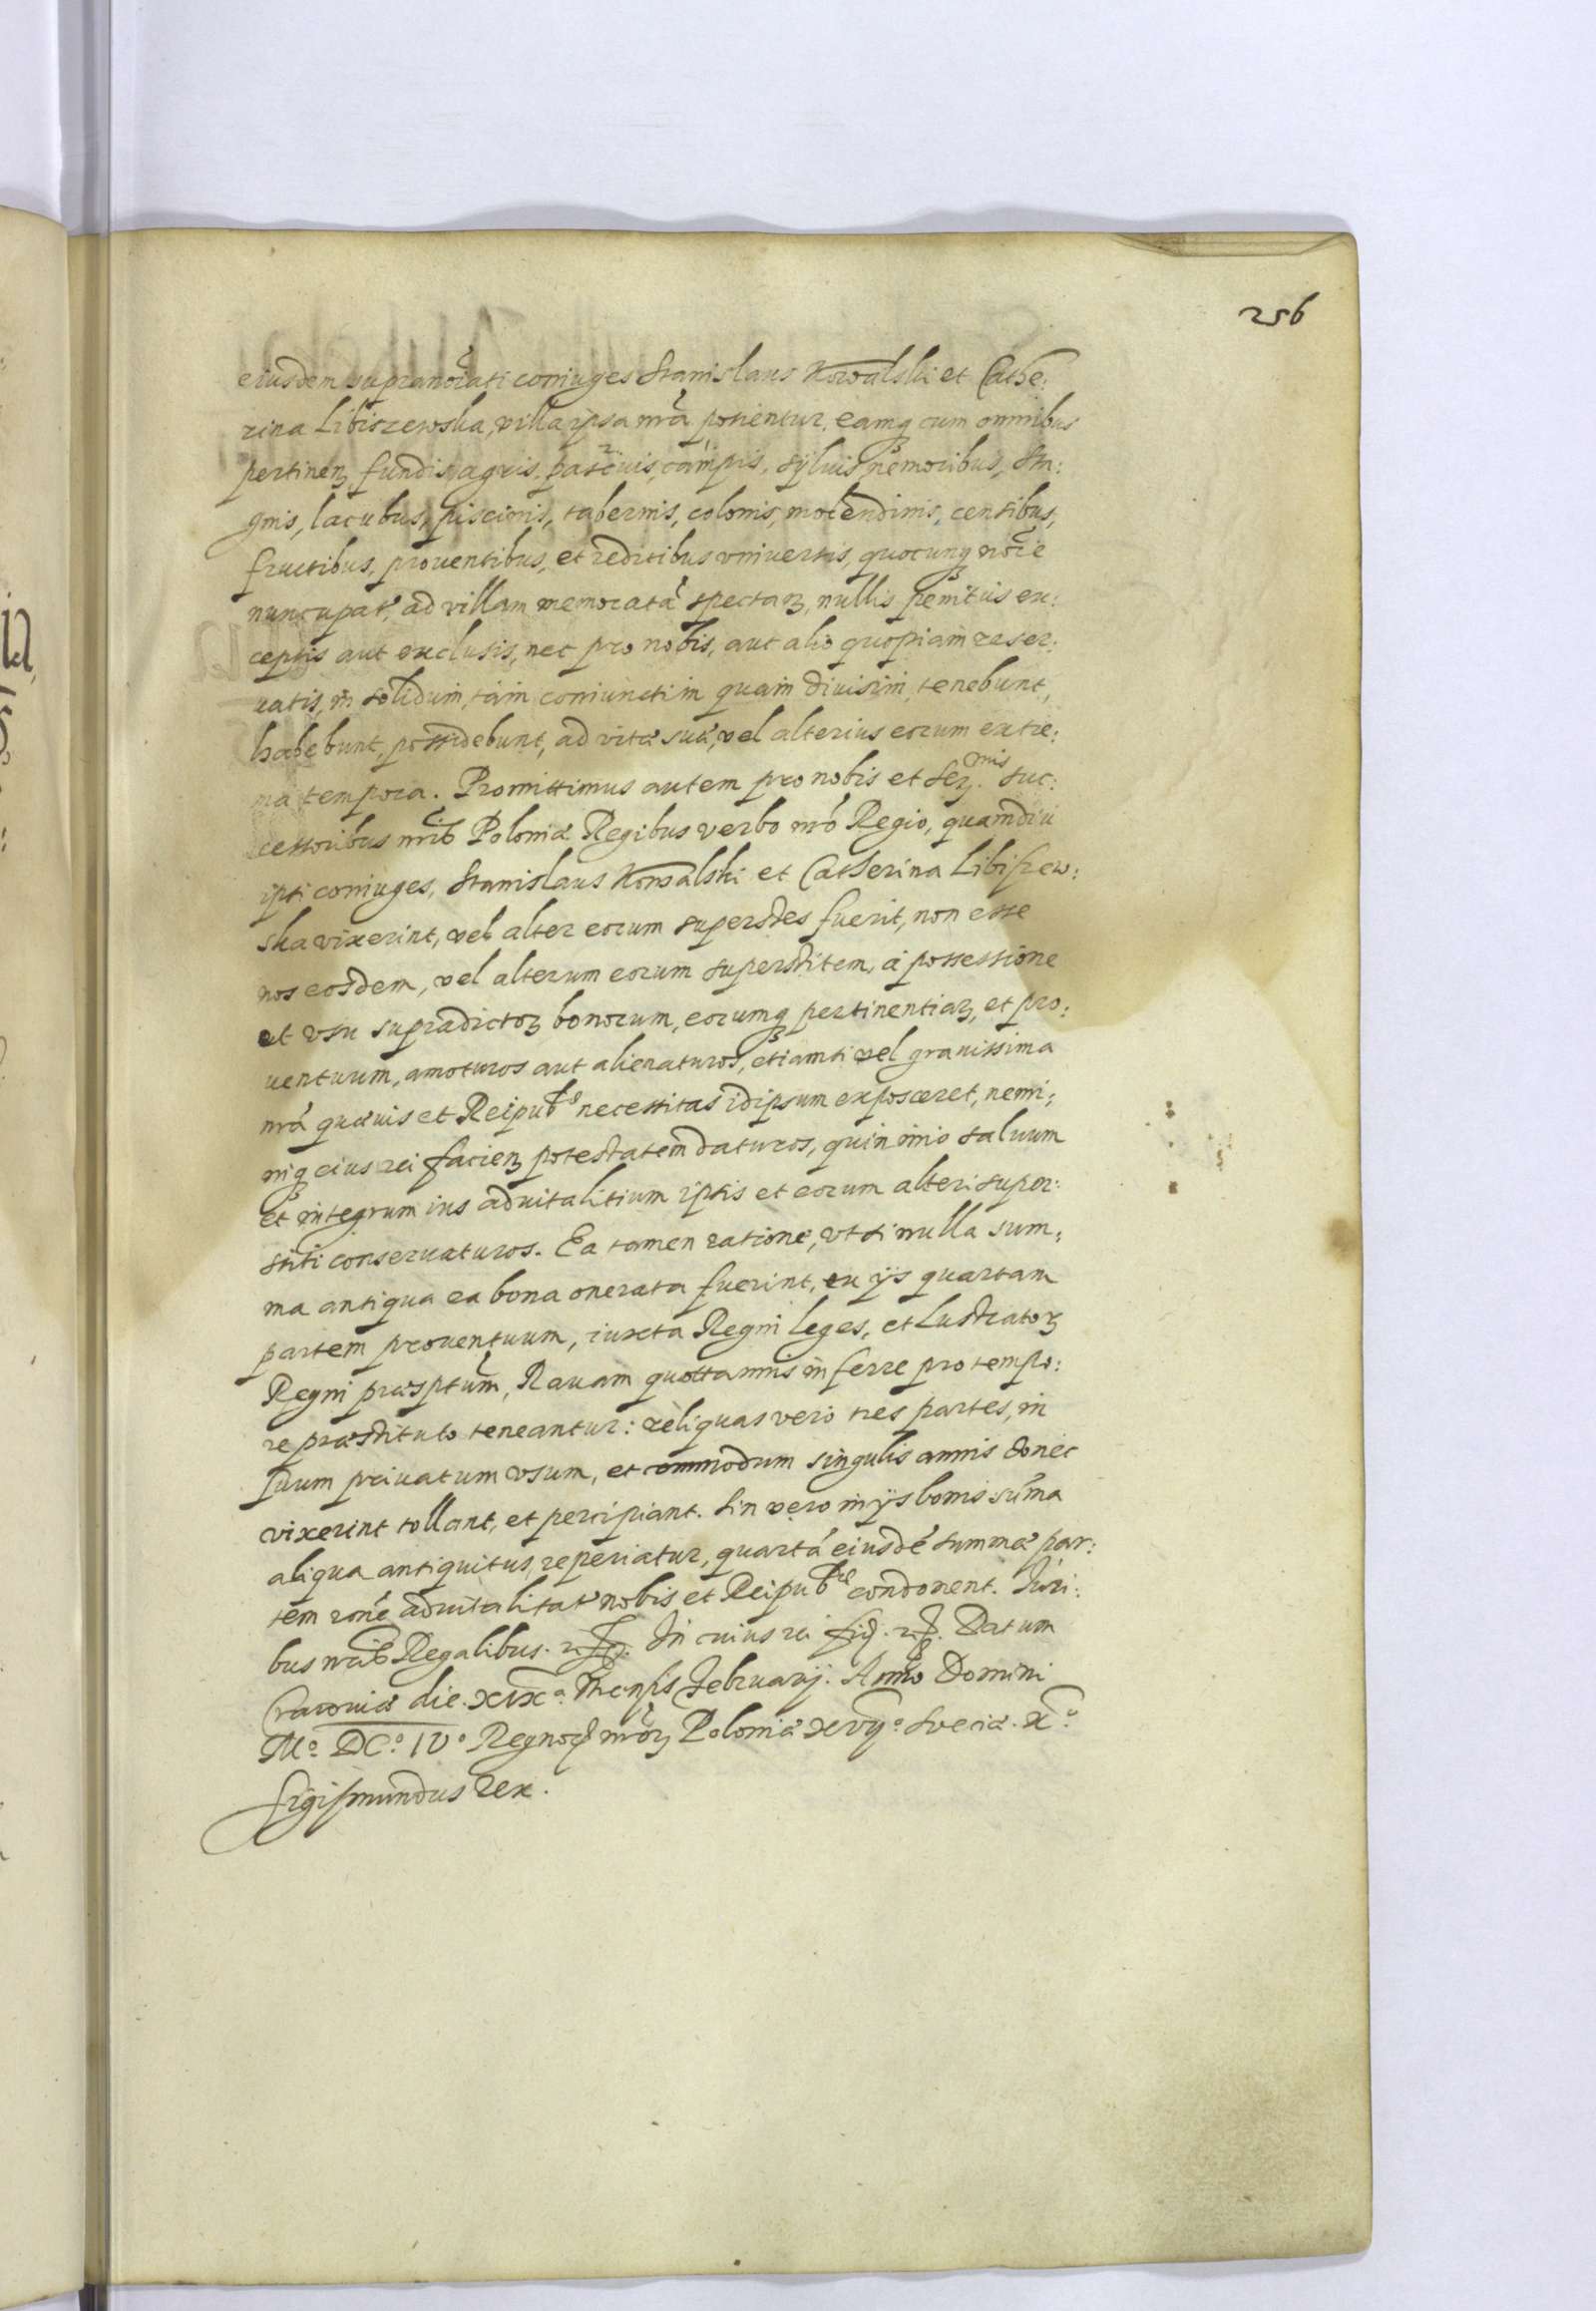 256
eiusdem supranoiati coniuges Stanislaus Kowalski et Cathe:
rina Libiszewska, villa ipsa nrã potientur, eamq cum omnibus
pertinen, fundis, agris, pascuis, campis, syluis, nemoribus, sta:
gnis, lacubus, piscinis, tabernis, colonis, molendinis, censibus,
fructibus, prouentibus, et reditibus vniuersis, quocunq noie
nuncupat, ad villam memoratã spectan, nullis penitus ex:
ceptis aut exclusis, nec pro nobis, aut alio quopiam reser:
uatis, in solidum, tam coniunctim quam diuisim, tenebunt,
habebunt, possidebunt, ad vitæ suæ, vel alterius eorum extre:
ma tempora. Promittimus autem pro nobis et Ser.mis suc:
cessoribus nrib Poloniæ Regibus verbo nrõ Regio, quamdiu
ipsi coniuges, Stanislaus Kowalski et Catherina Libiszew:
ska vixerint, vel alter eorum superstes fuerit, non esse
nos eosdem, vel alterum eorum superstitem, à possessione
et vsu supradictor bonorum, eorumq pertinentiar, et pro:
uentuum, amoturos aut alienaturos, etiamsi vel grauissima
nrã quæuis et Reipub necessitas idipsum exposceret, nemi:
niq eius rei facien potestatem daturos, quin imo saluum
et integrum ius aduitalitium ipsis et eorum alteri super:
stiti conseruaturos. Ea tamen ratione, vt si nulla sum:
ma antiqua ea bona onerata fuerint, ex ijs quartam
partem prouentuum, iuxta Regni leges, et Lustrator
Regni præsptum, Rauam quottannis inferre pro tempo:
re præstituto teneantur: reliquas vero tres partes, in
suum priuatum vsum, et commodum singulis annis donec
vixerint tollant, et percipiant. Sin vero in ijs bonis sũma
aliqua antiquitus, reperiatur, quartã eiusdẽ summæ par:
tem ronẽ aduitalitat nobis et Reipub condonent. Iuri:
bus nrib Regalibus. In cuius rei fid. Datum
Cracouiæ die. XIX.a Mensis Februarij. Anno Domini
M.o DC.o IV.o Regnor nror Poloniæ XVIJ.o Sveciæ. X.o
Sigismundus Rex.